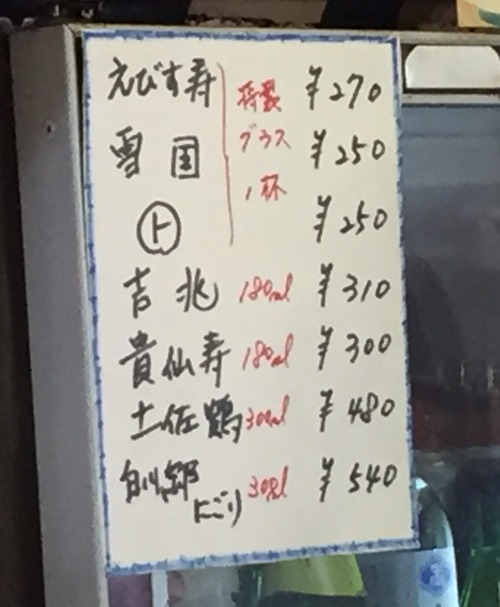 えびす寿 特製 ¥270
雪国 グラス ¥250
㋣ 1杯 ¥250
吉兆 180ml ¥310
貴仙寿 180ml ¥300
土佐鶴 300ml ¥480
白川郷 にごり 300ml ¥540